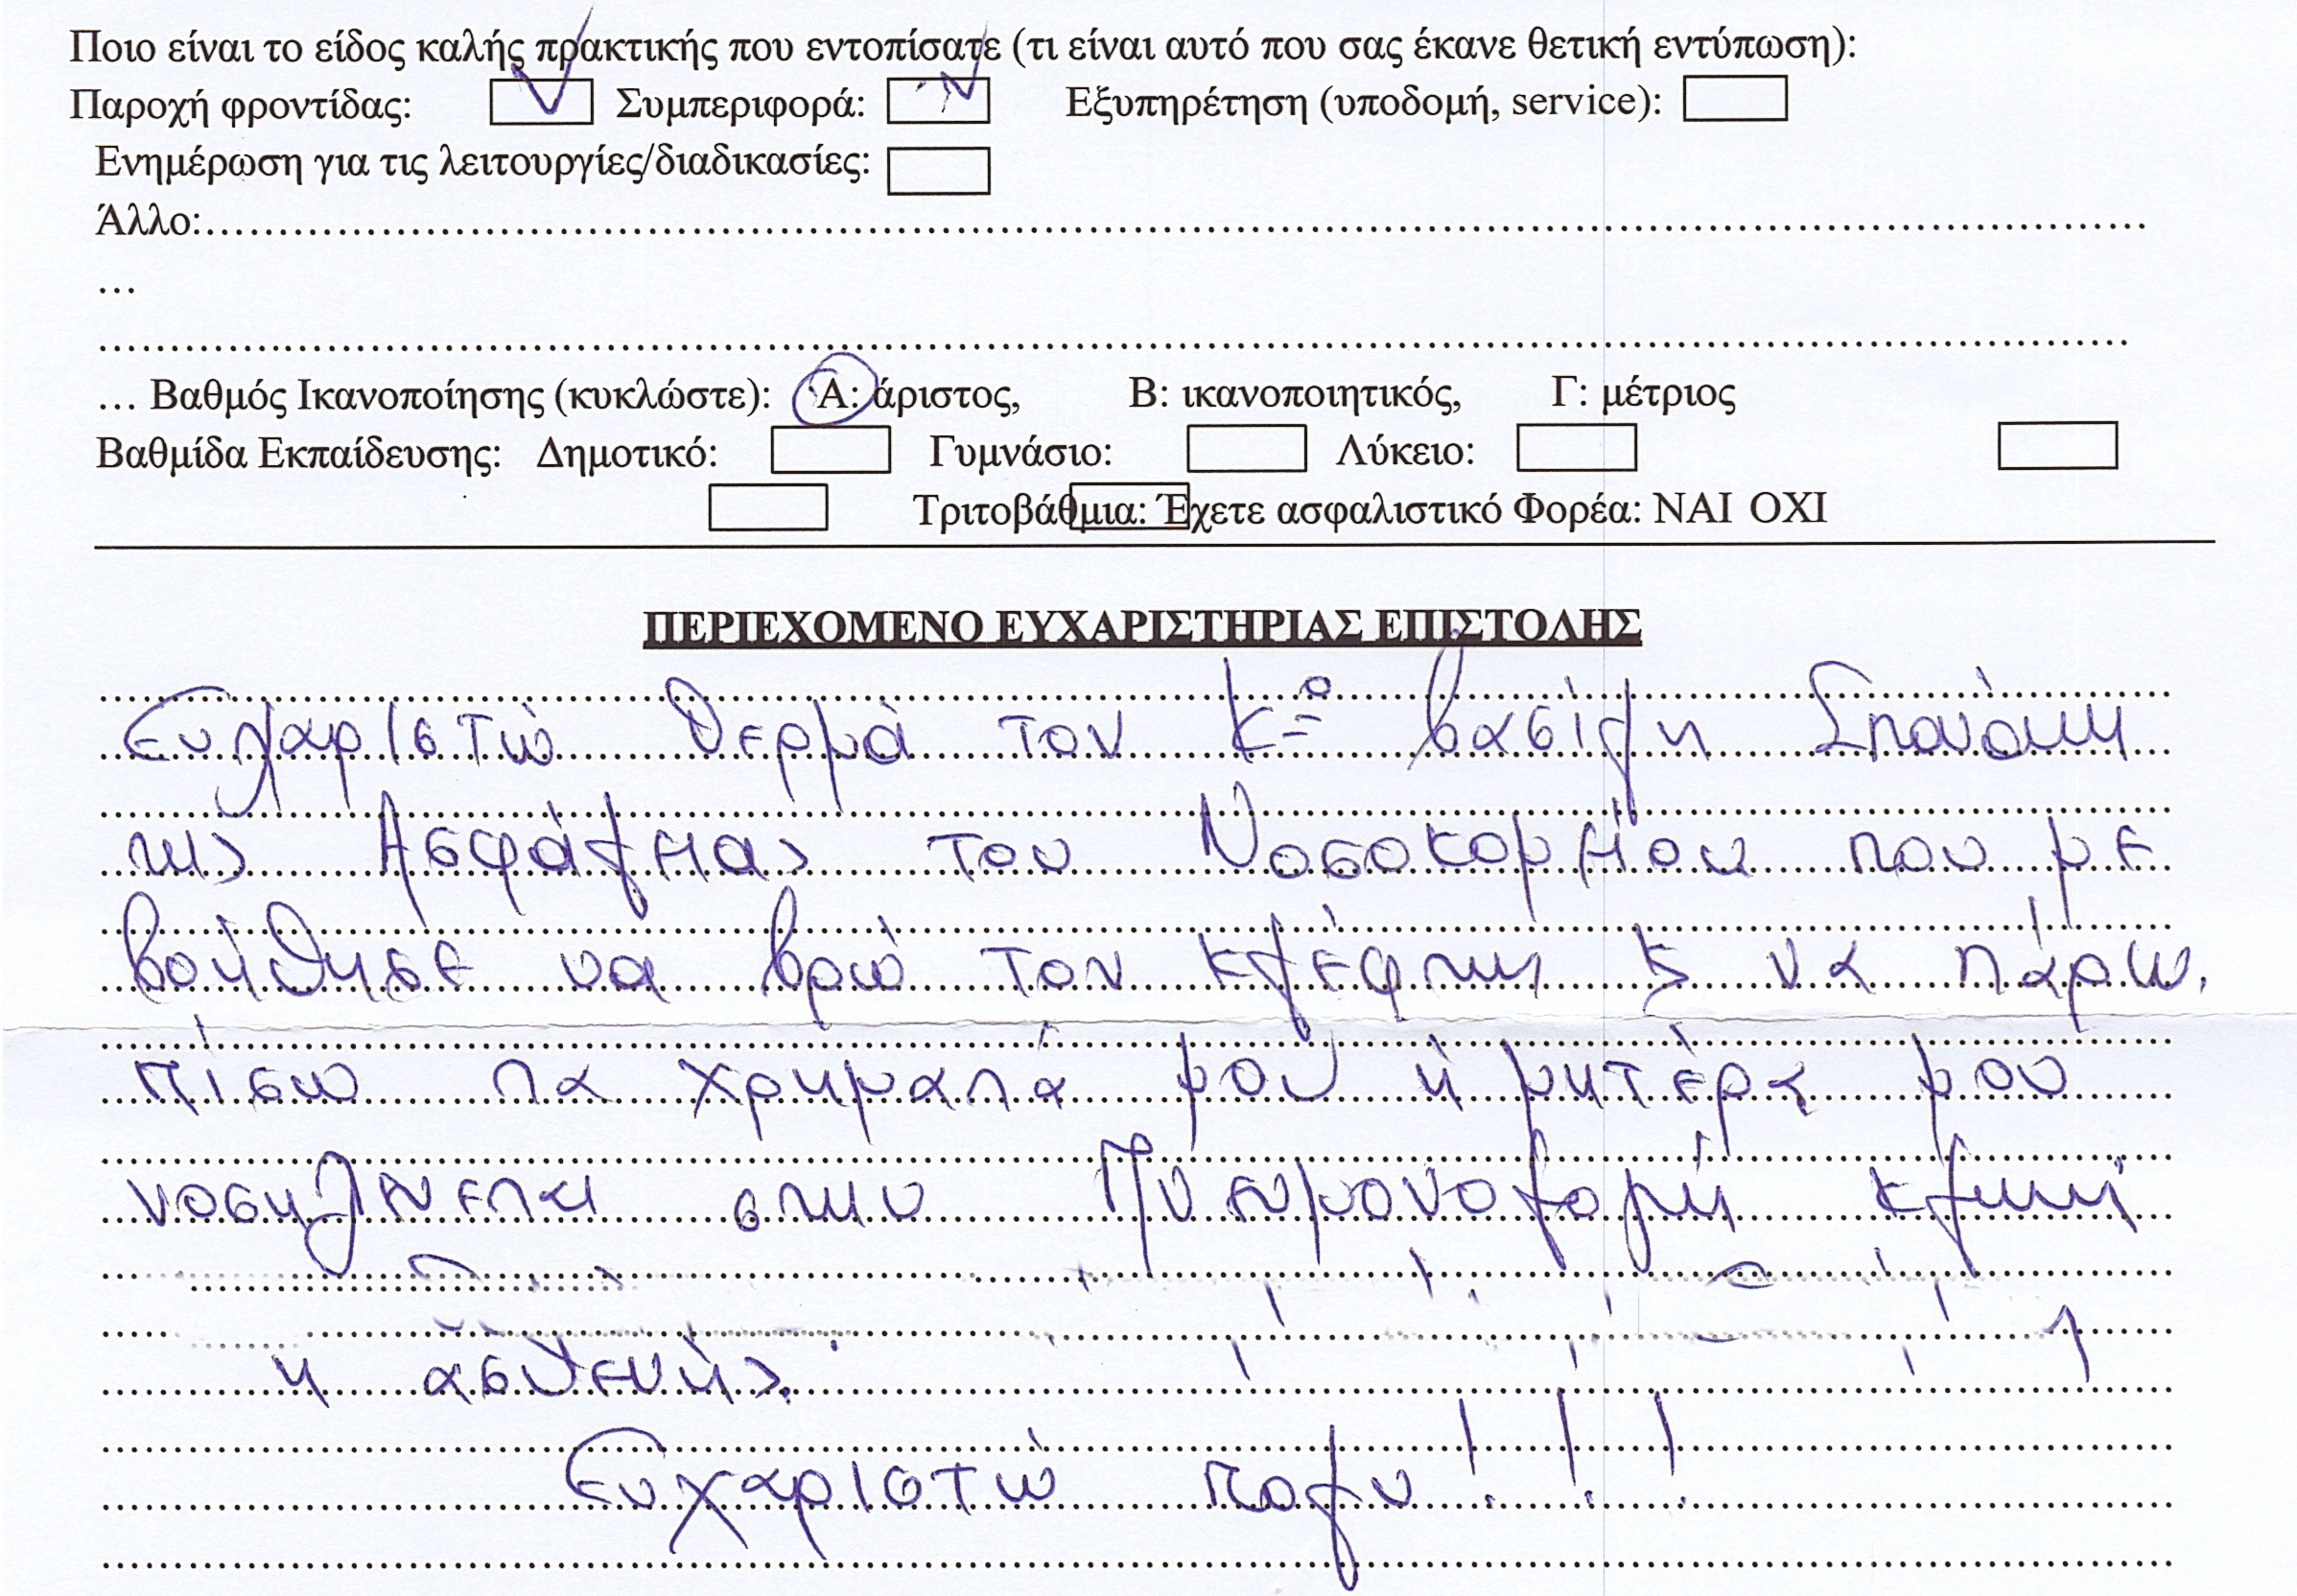 Ποιο είναι το είδος καλής πρακτικής που εντοπίσατε (τι είναι αυτό που σας έκανε θετική εντύπωση):
Παροχή φροντίδας: Συμπεριφορά: Εξυπηρέτηση (υποδομή, service):
Ενημέρωση για τις λειτουργίες/διαδικασίες:
Άλλο:..........................................................................................
…
..........................................................................................
… Βαθμός Ικανοποίησης (κυκλώστε): Α: άριστος, Β: ικανοποιητικός, Γ: μέτριος
Βαθμίδα Εκπαίδευσης: Δημοτικό: Γυμνάσιο: Λύκειο:
Τριτοβάθμια: Έχετε ασφαλιστικό Φορέα: ΝΑΙ ΟΧΙ
ΠΕΡΙΕΧΟΜΕΝΟ ΕΥΧΑΡΙΣΤΗΡΙΑΣ ΕΠΙΣΤΟΛΗΣ
Ευχαριστώ θερμά τον Κο Βασίλη Σπανάκη
της Ασφάλειας του Νοσοκομείου που με
βοήθησε να βρω τον κλέφτη κ να πάρω
πίσω τα χρήματά μου η μητέρα μου
νοσηλεύεται στην Πνευμονολογική κλινική
η ασθενής.
Ευχαριστώ πολυ!!!